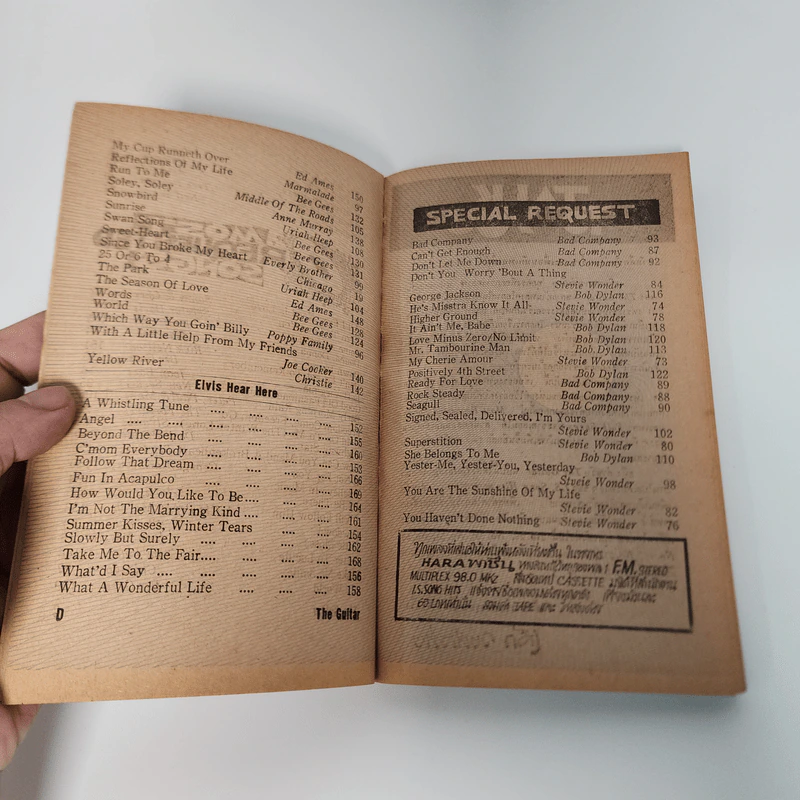 My Cup Runneth Over Ed Ames 150
Reflections Of My Life Marmalade 97
Run To Me Bee Gees 132
Soley, Soley Middle Of The Roads 105
Snowbird Anne Murray 138
Sunrise Uriah Heep 108
Swan Song Bee Gees 130
Sweet-Heart Bee Gees 131
Since You Broke My Heart Everly Brother 99
25 Or 6 To 4 Chicago 19
The Park Uriah Heep 104
The Season Of Love Ed Ames 148
Words Bee Gees 128
World Bee Gees 124
Which Way You Goin' Billy Poppy Family 96
With A Little Help From My Friends
Joe Cocker 140
Yellow River Christie 142
Elvis Hear Here
A Whistling Tune .... .... .... 152
Angel .... .... .... .... .... 155
Beyond The Bend .... .... .... 160
C'mom Everybody .... .... .... 153
Follow That Dream .... .... .... 166
Fun In Acapulco .... .... .... 169
How Would You Like To Be.... .... .... 164
I'm Not The Marrying Kind .... .... .... 161
Summer Kisses, Winter Tears .... .... 154
Slowly But Surely .... .... .... 162
Take Me To The Fair.... .... .... 168
What'd I Say .... .... .... .... 156
What A Wonderful Life .... .... .... 158
D The Guitar
SPECIAL REQUEST
Bad Company Bad Company 93
Can't Get Enough Bad Company 87
Don't Let Me Down Bad Company 92
Don't You Worry 'Bout A Thing
Stevie Wonder 84
George Jackson Bob Dylan 116
He's Misstra Know It All- Stevie Wonder 74
Higher Ground Stevie Wonder 78
It Ain't Me, Babe Bob Dylan 118
Love Minus Zero/No Limit Bob Dylan 120
Mr. Tambourine Man Bob Dylan 113
My Cherie Amour Stevie Wonder 73
Positively 4th Street Bob Dylan 122
Ready For Love Bad Company 89
Rock Steady Bad Company 88
Seagull Bad Company 90
Signed, Sealed, Delivered, I'm Yours
Stevie Wonder 102
Superstition Stevie Wonder 80
She Belongs To Me Bob Dylan 110
Yester-Me, Yester-You, Yesterday
Stveie Wonder 98
You Are The Sunshine Of My Life
Stevie Wonder 82
You Haven't Done Nothing Stevie Wonder 76
F.M. STEREO
MULTIPLEX 98.0 MHZ CASSETTE
SONG HITS
TAPE